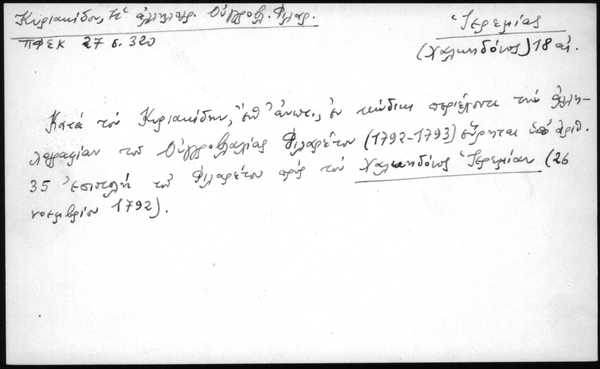 Κυριακίδου, Η ἀλληλογρ. Οὑγγροβλ. Φιλαρ.
ΠΦΕΚ 27 σ. 320
Ἱερεμίας
(Χαλκηδόνος) 18 αἰ.
Κατὰ τὸν Κυριακίδην, ἔνθ' ἀνωτ., ἐν κώδικι περιέχοντι τὴν ἀλλη-
λογραφίαν τοῦ Οὑγγροβλαχίας Φιλαρέτου (1792-1793) εὕρηται ὑπ' ἀριθ.
35 ἐπιστολὴ τοῦ Φιλαρέτου πρὸς τὸν Χαλκηδόνος Ἱερεμίαν (26
νοεμβρίου 1792).